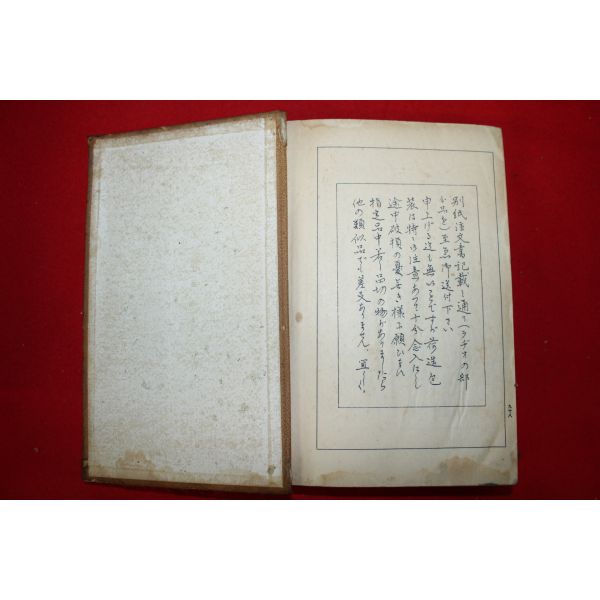 別紙注文書記載ノ通リ(ラヂオの部
小品を)至急御送付下さい
申上げる迄も無いことですが荷造包
装は特に御注意あつて十分念入にし
途中破損の憂無き様に願ひます
指定品中若し品切の物がありましたら
他の類似品でも差支ありません。宜しく。